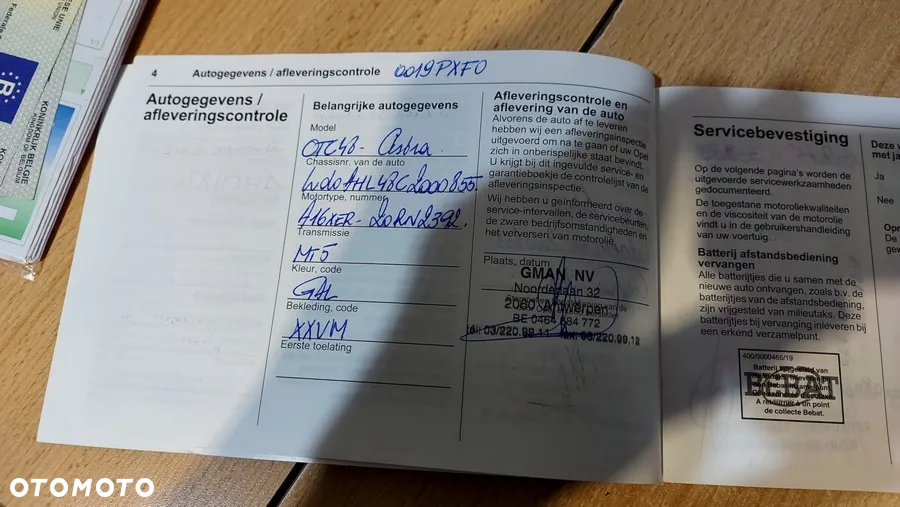 ESE UNIE
UNION
Federale
R
KONINKRIJK BELGIË
4 Autogegevens / afleveringscontrole 0019PXF0
Autogegevens /
afleveringscontrole
Belangrijke autogegevens
Model
OTC48 - Astra
Chassisnr. van de auto
W0L0AHL48C2000855
Motortype, nummer
A16XER - 20RN2392
Transmissie
MT5
Kleur, code
GAL
Bekleding, code
XXVM
Eerste toelating
Afleveringscontrole en
aflevering van de auto
Alvorens de auto af te leveren
hebben wij een afleveringsinspectie
uitgevoerd om na te gaan of uw Opel
zich in onberispelijke staat bevindt.
U krijgt bij dit ingevulde service- en
garantieboekje de controlelijst van de
afleveringsinspectie:
Wij hebben u geïnformeerd over de
service-intervallen, de servicebeurten,
de zware bedrijfsomstandigheden en
het verversen van motorolie.
Plaats, datum
GMAN NV
Noorderlaan 32
2060 Antwerpen
BE 0464 684 772
tel. 03/220.99.11 fax. 03/220.99.12
Servicebevestiging
Op de volgende pagina's worden de
uitgevoerde servicewerkzaamheden
gedocumenteerd.
De toegestane motoroliekwaliteiten
en de viscositeit van de motorolie
vindt u in de gebruikershandleiding
van uw voertuig.
Batterij afstandsbediening
vervangen
Alle batterijtjes die u samen met de
nieuwe auto ontvangen, zoals b.v. de
batterijtjes van de afstandsbediening,
zijn vrijgesteld van milieutaks. Deze
batterijtjes bij vervanging inleveren bij
een erkend verzamelpunt.
400/0000465/19
Batterij vrijgesteld van
BEBAT
A retourner à un point
de collecte Bebat.
Deze
met ja
Ja
Nee
OTOMOTO